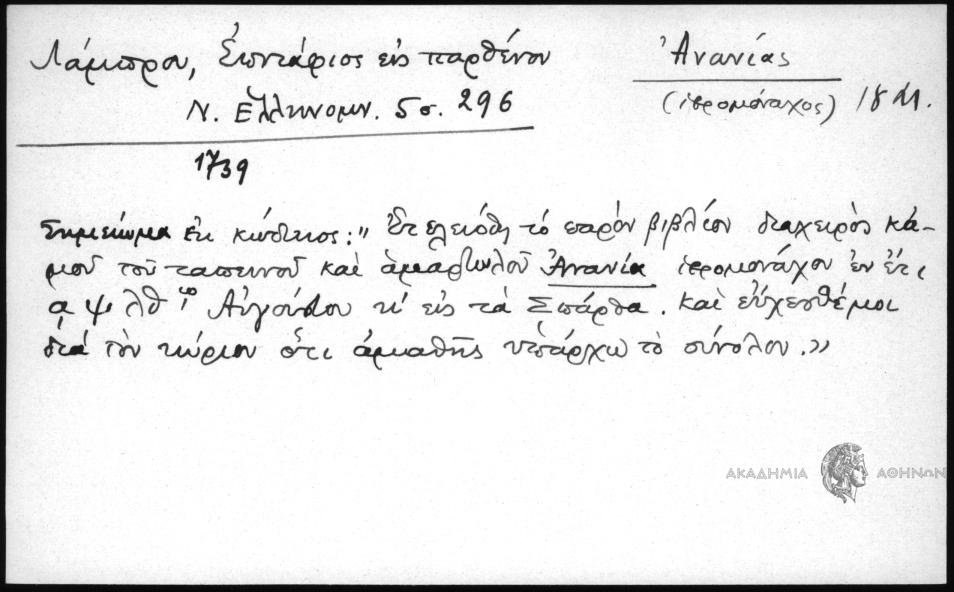 Λάμπρου, Ἐπιτάφιος εἰς παρθένον
Ν. Ἑλληνομν. 5 σ. 296
Ἀνανίας
(ἱερομόναχος) 18 αι.
1739
Σημείωμα ἐκ κώδικος: " Ἐτελειόθη τὸ παρὸν βιβλίον διαχειρὸς κἀ-
μοῦ τοῦ ταπεινοῦ καὶ ἁμαρτωλοῦ Ἀνανία ἱερομονάχου ἐν ἔτι
αψλθ ῳ Αὐγούστου κ' εἰς τὰ Σπάρθα. Καὶ εὔχεσθέμοι
διὰ τὸν κύριον ὅτι ἀμαθῆς ὑπάρχω τὸ σύνολον.»
ΑΚΑΔΗΜΙΑ ΑΘΗΝΩΝ